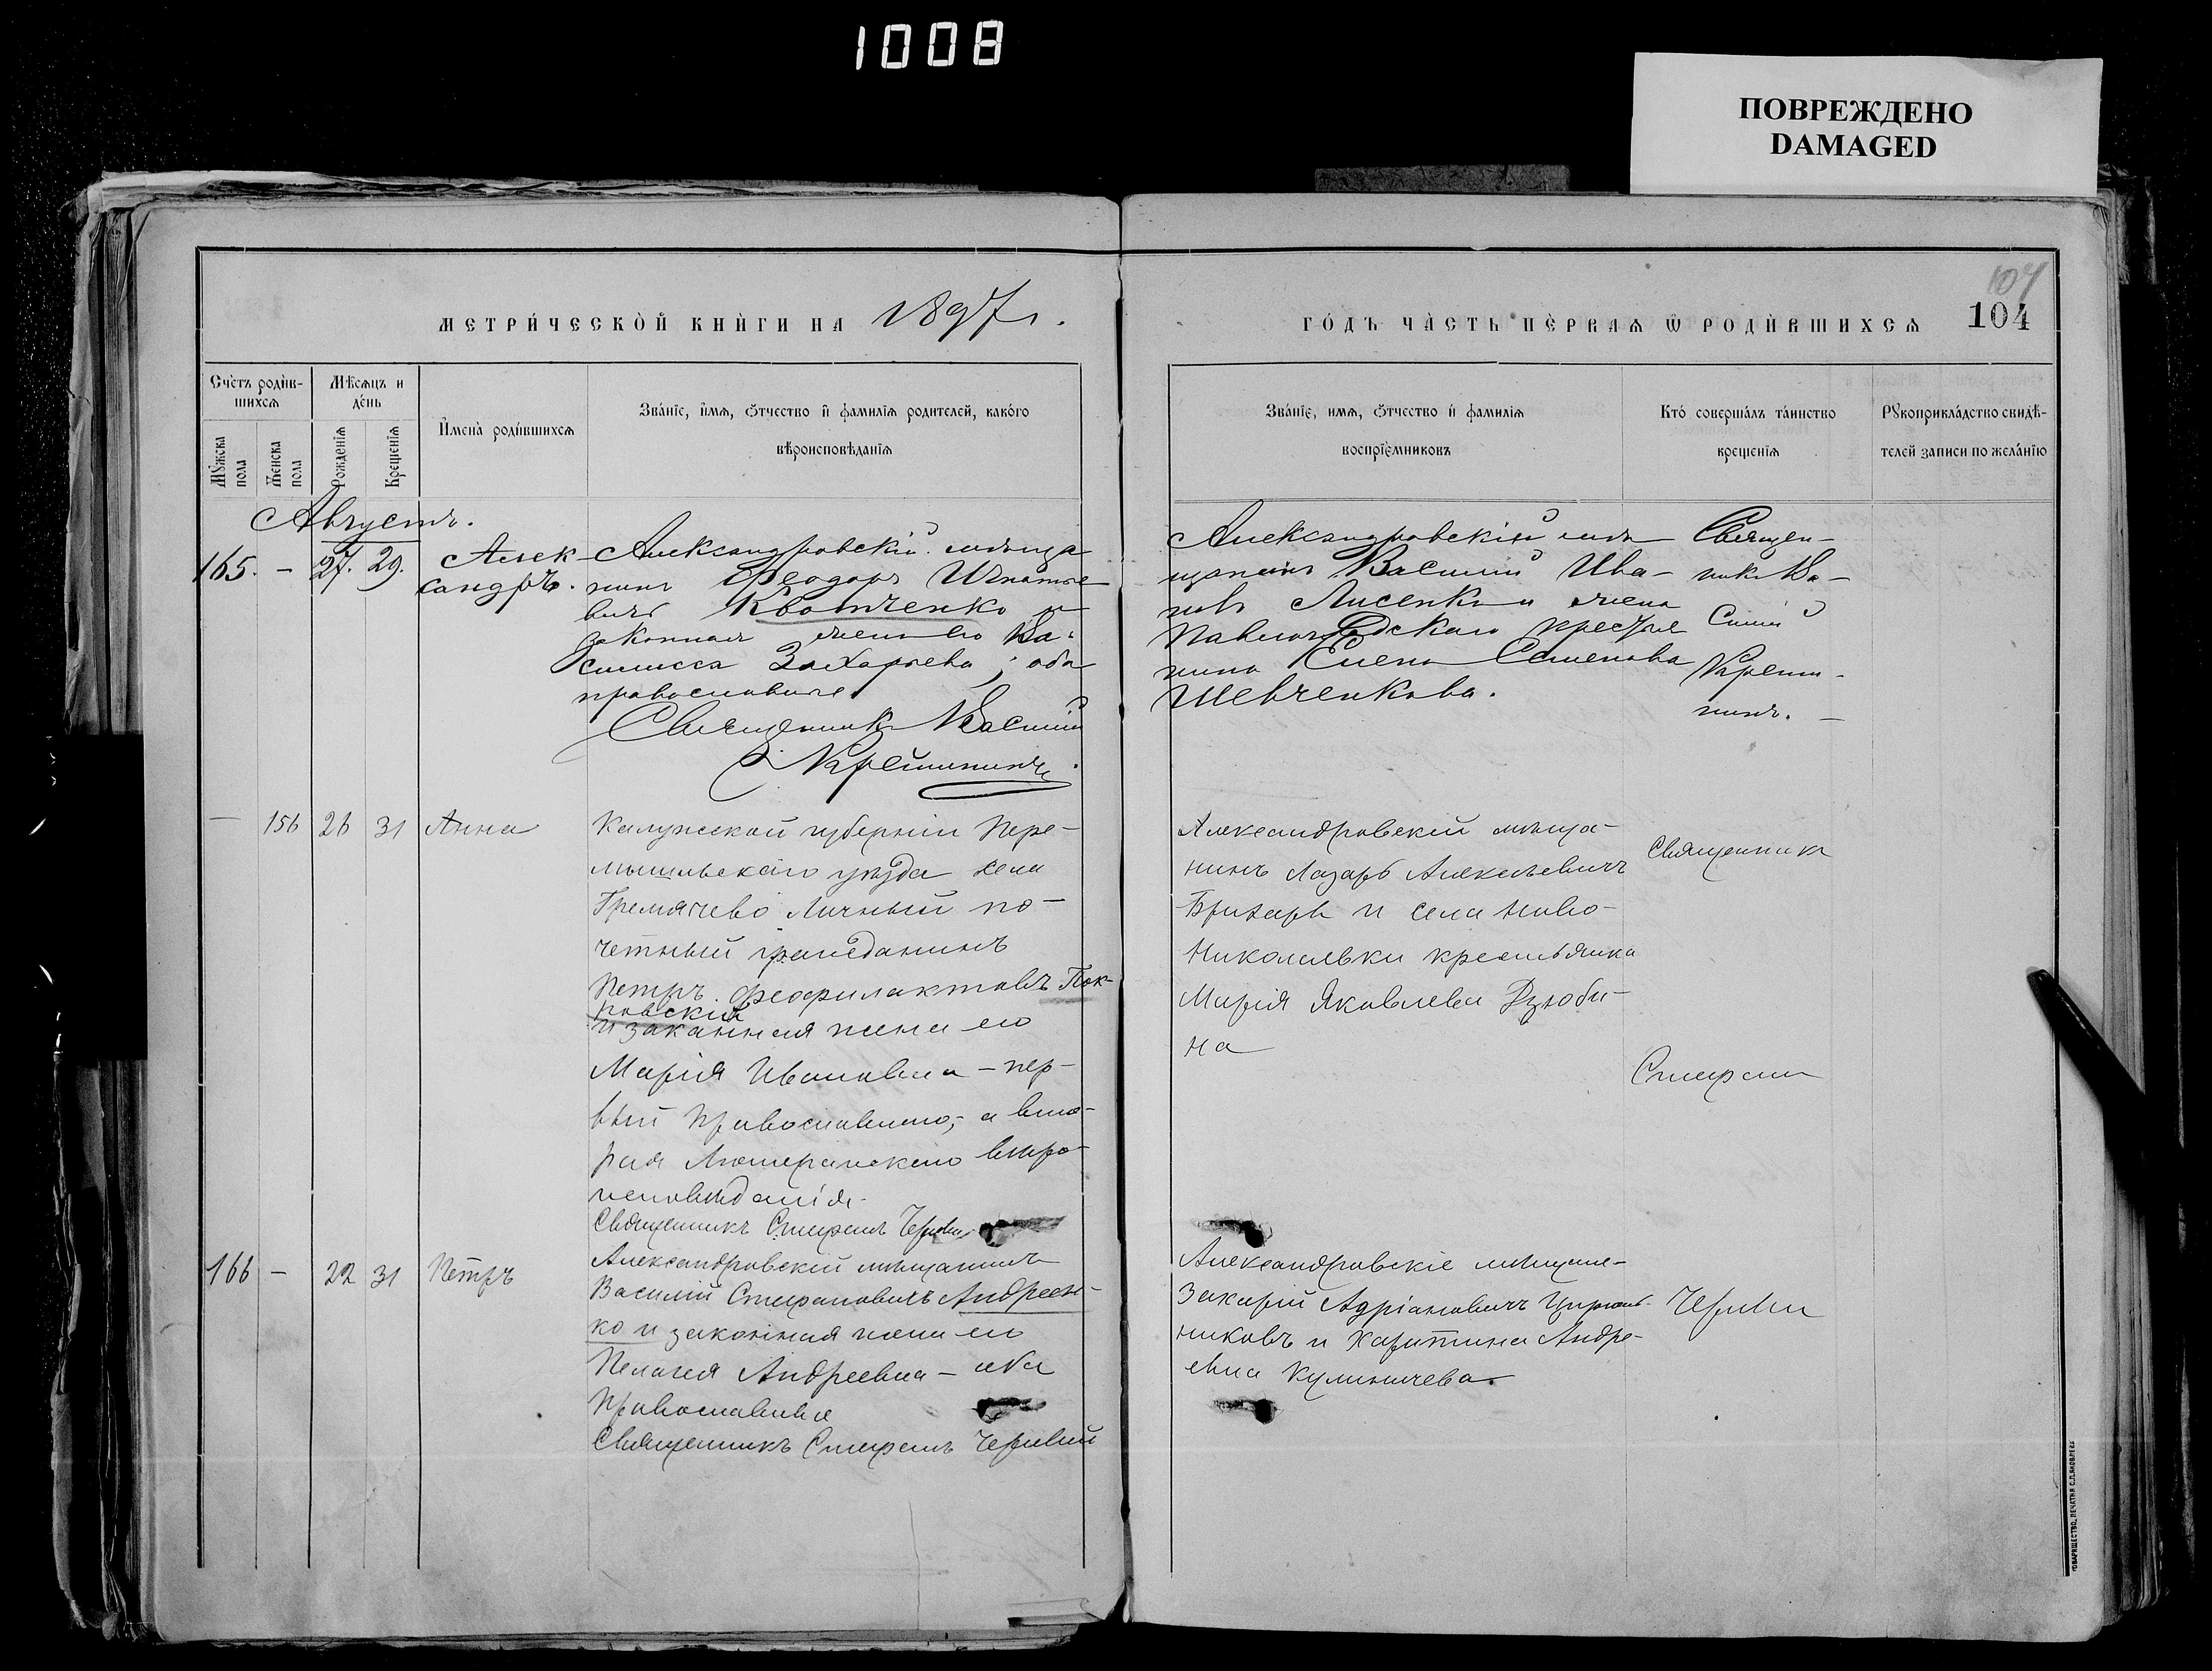 1008
ПОВРЕЖДЕНО
DAMAGED
104
104
МЕТРИ́ЧЕСКОЙ КНИ́ГИ НА 1897 г.
ГО́ДЪ ЧА́СТЬ ПЕ́РВАѦ Ѿ РОДИ́ВШИХСѦ
Сче́тъ роди́в-
шихсѧ
Мѣ́сѧцъ и
де́нь
Мꙋ́жска
пола
Же́нска
пола
Рожденїѧ
Крещенїѧ
И҆мена̀ роди́вшихсѧ
Зва́нїе, и҆́мѧ, ѻ҆́тчество и҆ фамилїѧ родителей, како́го
вѣроисповѣ́данїѧ
Зва́нїе, имѧ, ѻ҆́тчество и҆ фамилїѧ
воспрїе́мниковъ
Кто́ соверша́лъ та́инство
крещенїѧ
Рꙋкоприкла́дство свидѣ́-
телей записи по жела́нїю
Августъ.
165. – 27. 29. Алек
сандръ.
Александровскій мѣща
нинъ Ѳеодоръ Игнатье
вичъ Квотченко и
законная жена его Ва-
силисса Захарьева; оба
православные
Священникъ Василій
Карейшинъ
Александровскій мѣ
щанинъ Василій Ива-
новъ Лисенко и жена
Павлоградскаго крестья
нина Елена Семенова
Шевченкова.
Священ-
никъ Ва-
силій
– 156 26 31 Анна
Калужской губерніи Пере-
мышльскаго уѣзда села
Гремячево личный по-
четный гражданинъ
Петръ Феофилактовъ Пок-
ровскій
и законная жена его
Марія Ивановна – пер-
вый православнаго, а вто-
рая Лютеранскаго вѣро-
исповѣданія.
Священникъ Стефанъ
Александровскій мѣща-
нинъ Лазарь Алексѣевичъ
Бризарь и села Ново-
Николаевки крестьянка
Марія Яковлева Дзюби-
на
Священникъ
Стефанъ
166 – 22 31 Петръ
Александровскій мѣщанинъ
Василій Стефановичъ Андреен-
ко и законная жена его
Пелагея Андреевна – оба
Православные
Священникъ Стефанъ Червий
Александровскіе мѣщане-
Захарій Адріановичъ
никовъ и Харитина Андре-
евна Кулиничева
ТОВАРИЩЕСТВО „ПЕЧАТНЯ С.П.ЯКОВЛЕВА